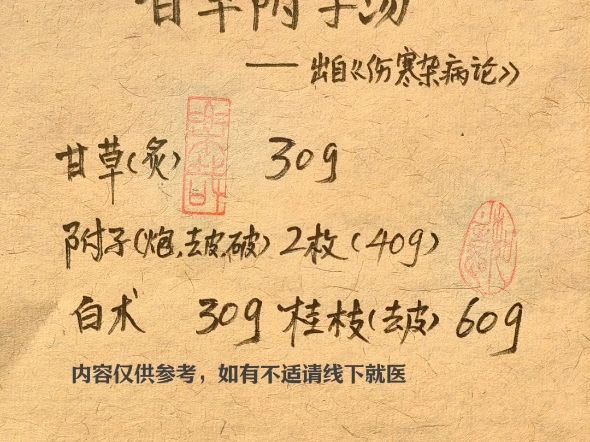 甘草附子汤
——出自《伤寒杂病论》
甘草(炙) 30g
附子(炮,去皮,破) 2枚(40g)
白术 30g 桂枝(去皮) 60g
内容仅供参考，如有不适请线下就医